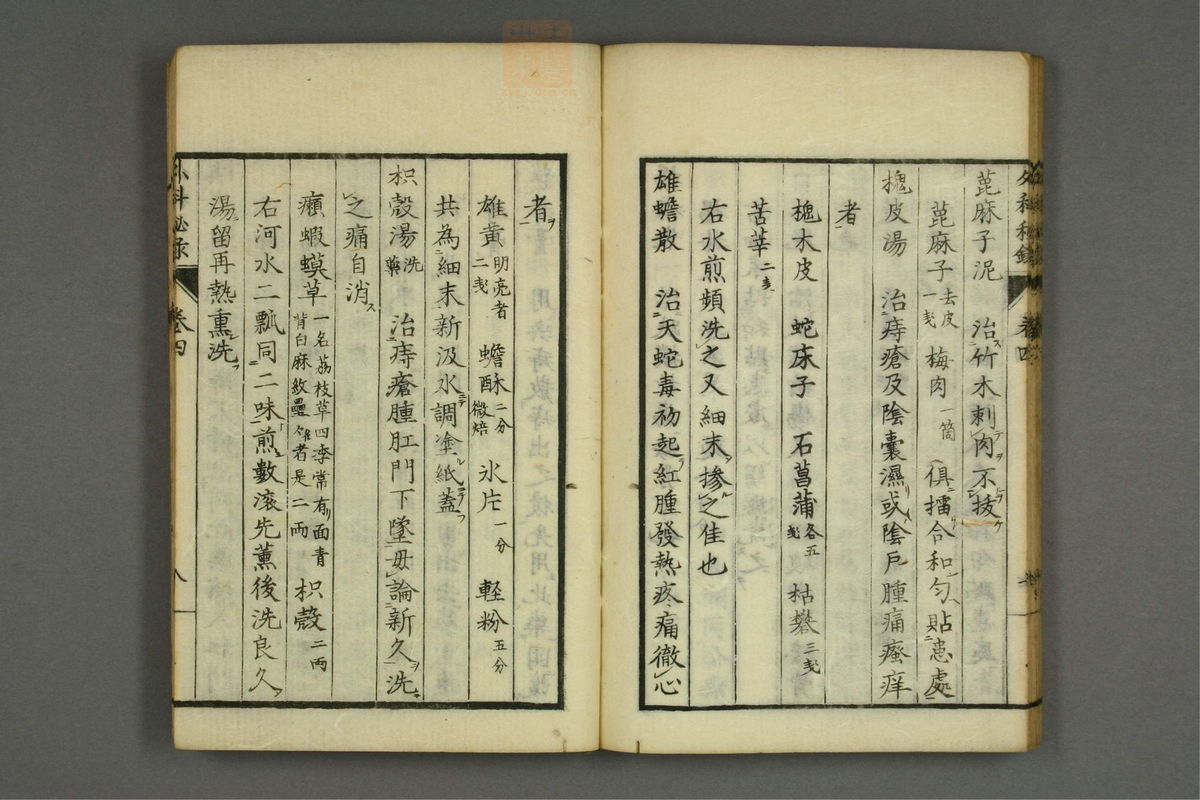 蓖麻子泥 治竹木刺肉不抜
蓖麻子 去皮一戔 梅肉 一箇 俱擂合和匀貼患處
槐皮湯 治痔瘡及陰囊濕或陰戶腫痛瘙痒
者
槐木皮 蛇床子 石菖蒲 各五戔 枯礬 三戔
苦莘 二戔
右水煎頻洗之又細末摻之佳也
雄蟾散 治天蛇毒初起紅腫發熱疼痛徹心
者
雄黄 明亮者二戔 蟾酥 二分微焙 氷片 一分 軽粉 五分
共為細末新汲水調塗紙蓋
枳殼湯 洗藥 治痔瘡腫肛門下墜毋論新久洗
之痛自消
癩蝦蟆草 一名荔枝草四季常有面青背白麻紋壘雄者是二両 枳殼 二両
右河水二瓢同二味煎數滚先薰後洗良久
湯留再熱熏洗
外科秘录 卷四 八